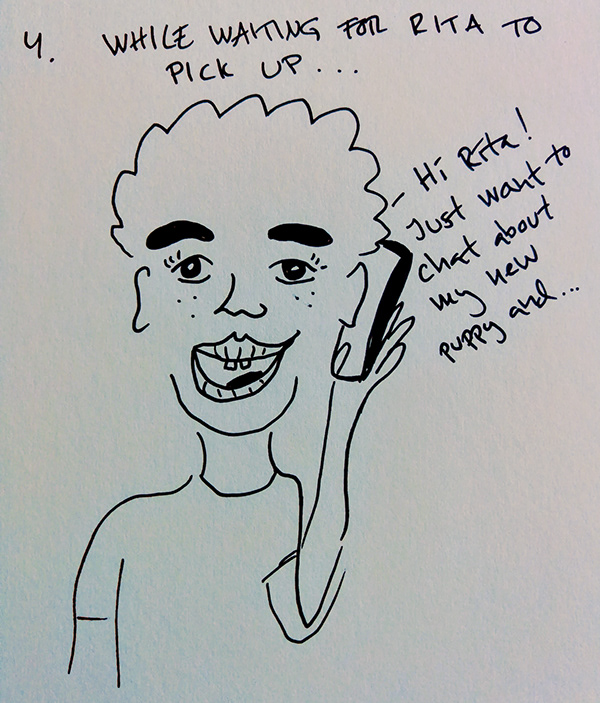 4. WHILE WAITING FOR RITA TO
PICK UP...
- Hi Rita!
Just want to
chat about
my new
puppy and...